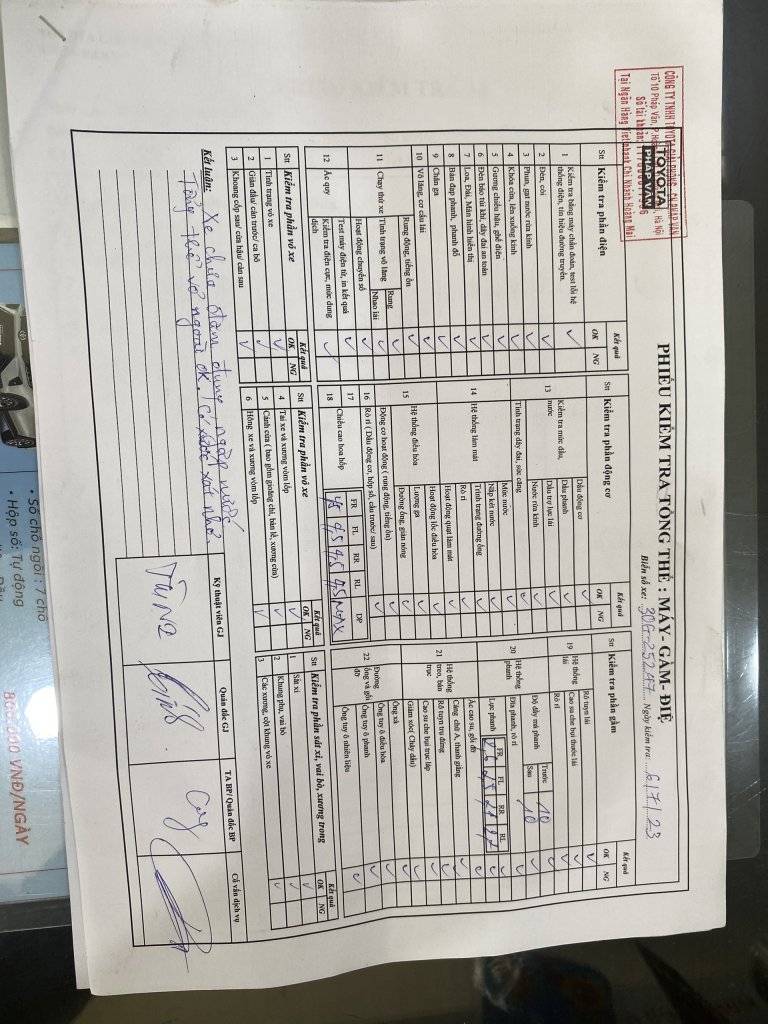 CÔNG TY TNHH TOYOTA
Tổ 10 Pháp Vân, P. Hà Nội
Số tài khoản
Tại Ngân Hàng Vietinbank Chi Nhánh Hoàng Mai
TOYOTA
PHÁP VÂN
PHIẾU KIỂM TRA TỔNG THỂ : MÁY- GẦM- ĐIỆ
Biển số xe: 30G-252.47 Ngày kiểm tra: 6/7/23
Stt Kiểm tra phần điện Kết quả
OK NG
1 Kiểm tra bằng máy chẩn đoán, test lỗi hệ
thống điện, tín hiệu đường truyền.
2 Đèn, còi
3 Phun, gạt nước rửa kính
4 Khóa cửa, lên xuống kính
5 Gương chiếu hậu, ghế điện
6 Đèn báo túi khí, dây đai an toàn
7 Loa, Đài, Màn hình hiển thị
8 Bàn đạp phanh, phanh đỗ
9 Chân ga
10 Vô lăng, cơ cấu lái
11 Chạy thử xe
Rung động, tiếng ồn
Tình trạng vô lăng Rung
Nhao lái
Hoạt động chuyển số
12 Ắc quy
Test máy điện tử, in kết quả
Kiểm tra điện cực, mức dung
dịch
Stt Kiểm tra phần động cơ Kết quả
OK NG
13 Kiểm tra mức dầu,
nước
Dầu động cơ
Dầu phanh
Dầu trợ lực lái
Nước rửa kính
Tình trạng dây đai, sức căng
14 Hệ thống làm mát
Mức nước
Nắp két nước
Trình trạng đường ống
Rò rỉ
Hoạt động quạt làm mát
15 Hệ thống điều hòa
Hoạt động lốc điều hòa
Lượng ga
Đường ống, giàn nóng
Động cơ hoạt động ( rung động, tiếng ồn)
16 Rò rỉ ( Dầu động cơ, hộp số, cầu trước/ sau)
17 Chiều cao hoa lốp
18
FR FL RR RL DP
Stt Kiểm tra phần gầm Kết quả
OK NG
19 Hệ thống
lái
Rô tuyn lái
Cao su che bụi thước lái
Rò rỉ
20 Hệ thống
phanh
Độ dày má phanh Trước 10
Sau 10
Đĩa phanh, rò rỉ
Lực phanh FR FL RR RL
21 Hệ thống
treo, bán
trục
Ắc cao su, gối đỡ
Càng chữ A, thanh giằng
Rô tuyn trụ đứng
Cao su che bụi trục láp
Giảm xóc( Chảy dầu)
22 Đường
ống và gối
đỡ
Ống xả
Ống tuy ô điều hòa
Ống tuy ô phanh
Ống tuy ô nhiên liệu
Stt Kiểm tra phần vỏ xe Kết quả
OK NG
1 Tình trạng vỏ xe
2 Giàn đầu/ cản trước/ ca bô
3 Khoang cốp sau/ cửa hậu/ cản sau
Stt Kiểm tra phần vỏ xe Kết quả
OK NG
4 Tai xe và xương vòm lốp
5 Cánh cửa ( bao gồm gioăng chỉ, bản lề, xương cửa)
6 Hông xe và xương vòm lốp
Stt Kiểm tra phần sát xi, vai bò, xương trong Kết quả
OK NG
1 Sát xi
2 Khung phụ, vai bò
3 Các xương, cột khung vỏ xe
Kết luận: Xe chưa đâm đụng, ngập nước
Tổng thể vỏ ngoài ok. (Có xước xát nhỏ
Kỹ thuật viên GJ Quản đốc GJ TA BP/ Quản đốc BP Cố vấn dịch vụ
TÙNG
• Số chỗ ngồi : 7 chỗ
• Hộp số: Tự động
800.000 VNĐ/NGÀY